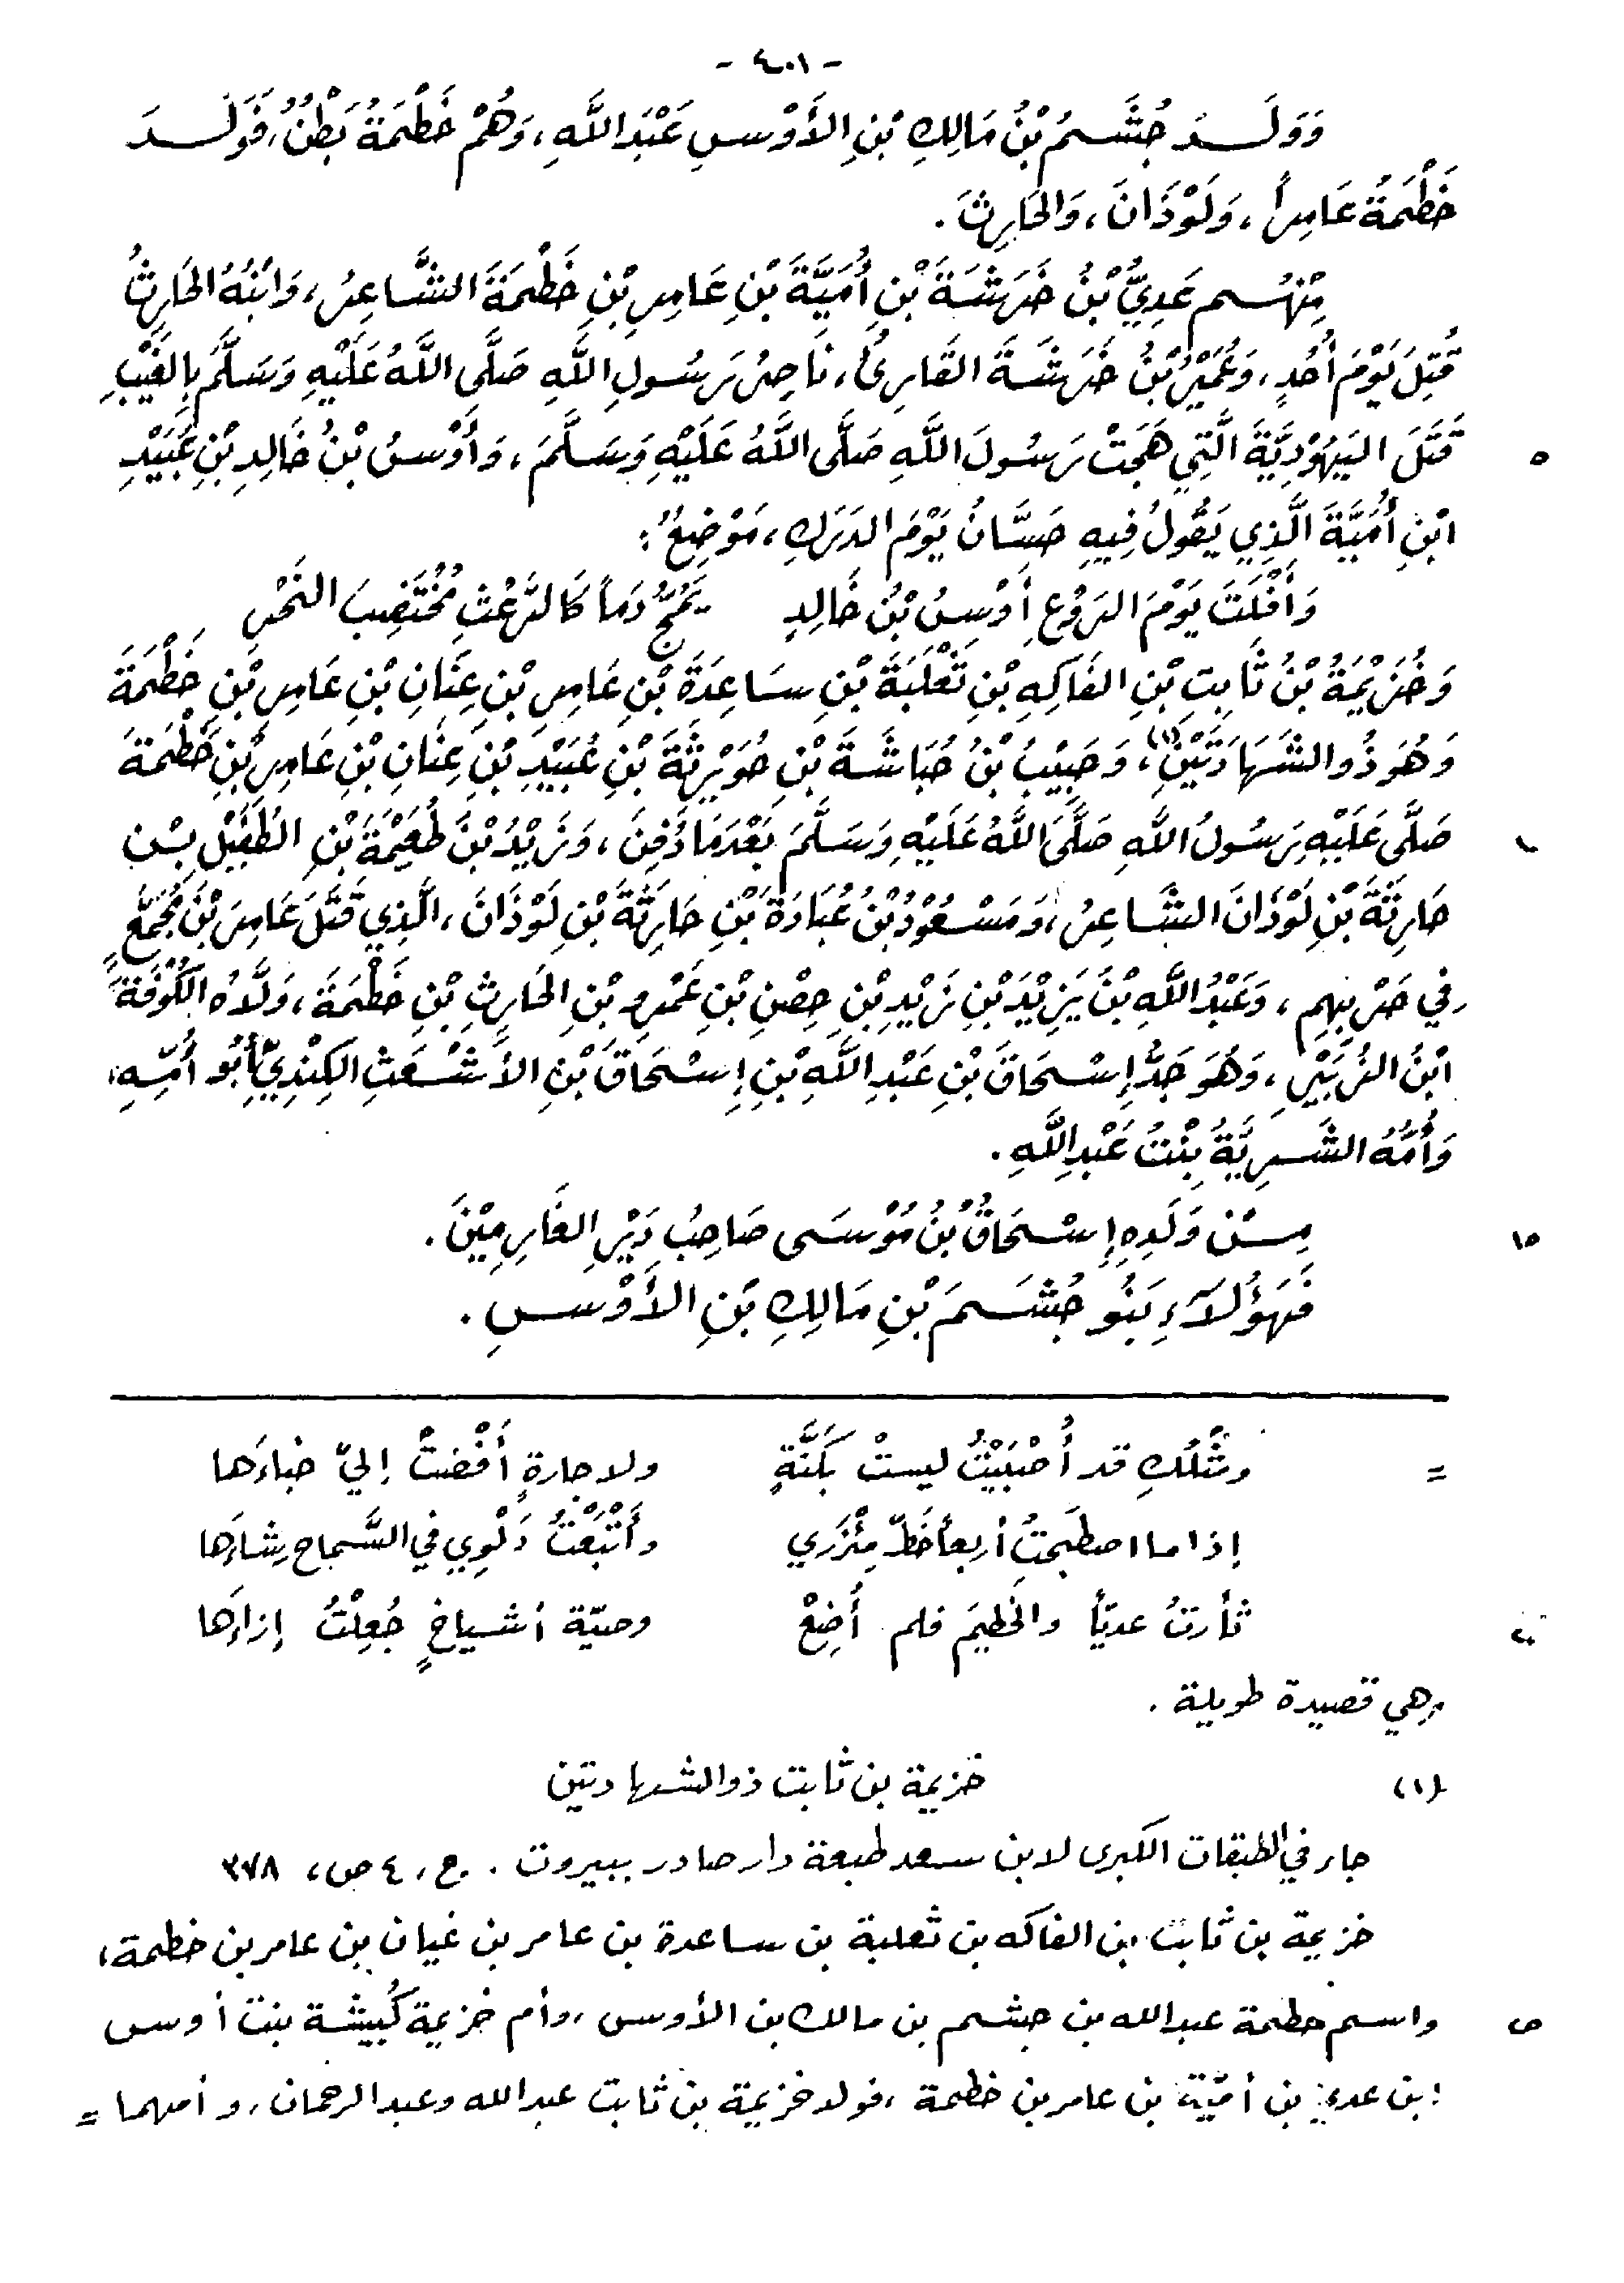 - ٤٠١ -
وَوَلَـــدَ جُشَـمُ بْنُ مَالِكِ بْنِ الأَوْسِ عَبْدَ اللَّهِ، وَهُمْ خَطْمَةُ بَطْنٌ، فَوَلَـــدَ
خَطْمَةُ عَامِراً، وَلَوْذَانَ، وَالحَارِثَ.
مِنْهُـم عَدِيُّ بْنُ خَرَشَةَ بْنِ أُمَيَّةَ بْنِ عَامِرِ بْنِ خَطْمَةَ الشَّاعِرُ، وَابْنُهُ الحَارِثُ
قُتِلَ يَوْمَ أُحُدٍ، وَعُمَيْرُ بْنُ خَرَشَةَ القَارِئُ، نَاصِرُ رَسُولِ اللَّهِ صَلَّى اللَّهُ عَلَيْهِ وَسَلَّمَ بِالغَيْبِ
قَتَلَ اليَهُوْدِيَّةَ الَّتِي هَجَتْ رَسُولَ اللَّهِ صَلَّى اللَّهُ عَلَيْهِ وَسَلَّمَ، وَأَوْسُ بْنُ خَالِدِ بْنِ عُبَيْدِ
٥
ابْنِ أُمَيَّةَ الَّذِي يَقُولُ فِيهِ حَسَّانُ يَوْمَ الدَرَكِ، مَوْضِعٌ:
وَأَفْلَتَ يَوْمَ الرَوْعِ أَوْسُ بْنُ خَالِدٍ يَمُجُّ دَماً كَالرَّعْثِ مُخْتَضِبَ النَحْرِ
وَخُزَيْمَةُ بْنُ ثَابِتِ بْنِ الفَاكِهِ بْنِ ثَعْلَبَةَ بْنِ سَاعِدَةَ بْنِ عَامِرِ بْنِ عِنَانِ بْنِ عَامِرِ بْنِ خَطْمَةَ
وَهُوَ ذُو الشَهَادَتَيْنِ(١)، وَحَبِيْبُ بْنُ حُبَاشَةَ بْنِ حُوَيْرِثَةَ بْنِ عُبَيْدِ بْنِ عِنَانِ بْنِ عَامِرِ بْنِ خَطْمَةَ
صَلَّى عَلَيْهِ رَسُولُ اللَّهِ صَلَّى اللَّهُ عَلَيْهِ وَسَلَّمَ بَعْدَمَا دُفِنَ، وَزَيْدُ بْنُ طُعَيْمَةَ بْنِ الطُفَيْلِ بْـنِ
١٠
حَارِثَةَ بْنِ لَوْذَانَ الشَّاعِرُ، وَمَسْعُوْدُ بْنُ عُبَادَةَ بْنِ حَارِثَةَ بْنِ لَوْذَانَ، الَّذِي قَتَلَ عَامِرَ بْنَ مُجَمِّعٍ
فِي حَرْبِهِم، وَعَبْدُ اللَّهِ بْنُ يَزِيْدَ بْنِ زَيْدِ بْنِ حِصْنِ بْنِ عَمْرِو بْنِ الحَارِثِ بْنِ خَطْمَةَ، وَلَّاهُ الكُوْفَةَ
ابْنُ الزُبَيْرِ، وَهُوَ جَدُّ إِسْحَاقَ بْنِ عَبْدِ اللَّهِ بْنِ إِسْحَاقَ بْنِ الأَشْعَثِ الكِنْدِيِّ أَبُو أُمِّهِ،
وَأُمُّهُ السَّـرِيَّةُ بِنْتُ عَبْدِ اللَّهِ.
مِـنْ وَلَدِهِ إِسْحَاقُ بْنُ مُوْسَى صَاحِبُ دَيْرِ الغَارِمِيْنَ.
١٥
فَهَؤُلَاءِ بَنُو جُشَـمَ بْنِ مَالِكِ بْنِ الأَوْسِ.
= ومثلُكِ قد أُصْبَيْتُ ليستْ بكَنَّةٍ ولا جارةٍ أَفْضَتْ إليّ خباءَها
إذا ما اصطبحتُ أربعاً خَطَّ مِئْزَري وأَتْبَعْتُ دَلْوِي في السَّماح رِشاءَها
ثأرتُ عديّاً والخَطِيمَ فلم أُضِعْ وصيّة أشياخٍ جُعِلْتُ إزاءَها
٢٠
وهي قصيدة طويلة.
(١) خزيمة بن ثابت ذو الشهادتين
جاء في الطبقات الكبرى لابن سعد طبعة دار صادر ببيروت. ج، ٤ ص، ٣٧٨
خزيمة بن ثابت بن الفاكه بن ثعلبة بن ساعدة بن عامر بن غيان بن عامر بن خطمة،
واسم خطمة عبد الله بن جشم بن مالك بن الأوس، وأم خزيمة كُبيشة بنت أوس
٢٥
ابن عدي بن أميّة بن عامر بن خطمة، فولد خزيمة بن ثابت عبد الله وعبد الرحمان، وأمهما =